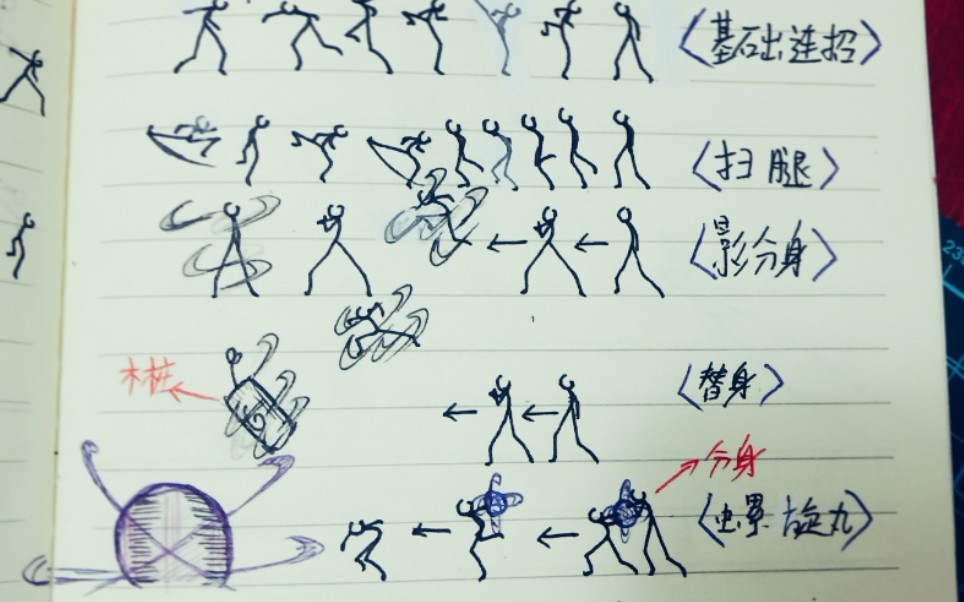 〈基础连招〉
〈扫腿〉
〈影分身〉
木桩
〈替身〉
分身
〈螺旋丸〉